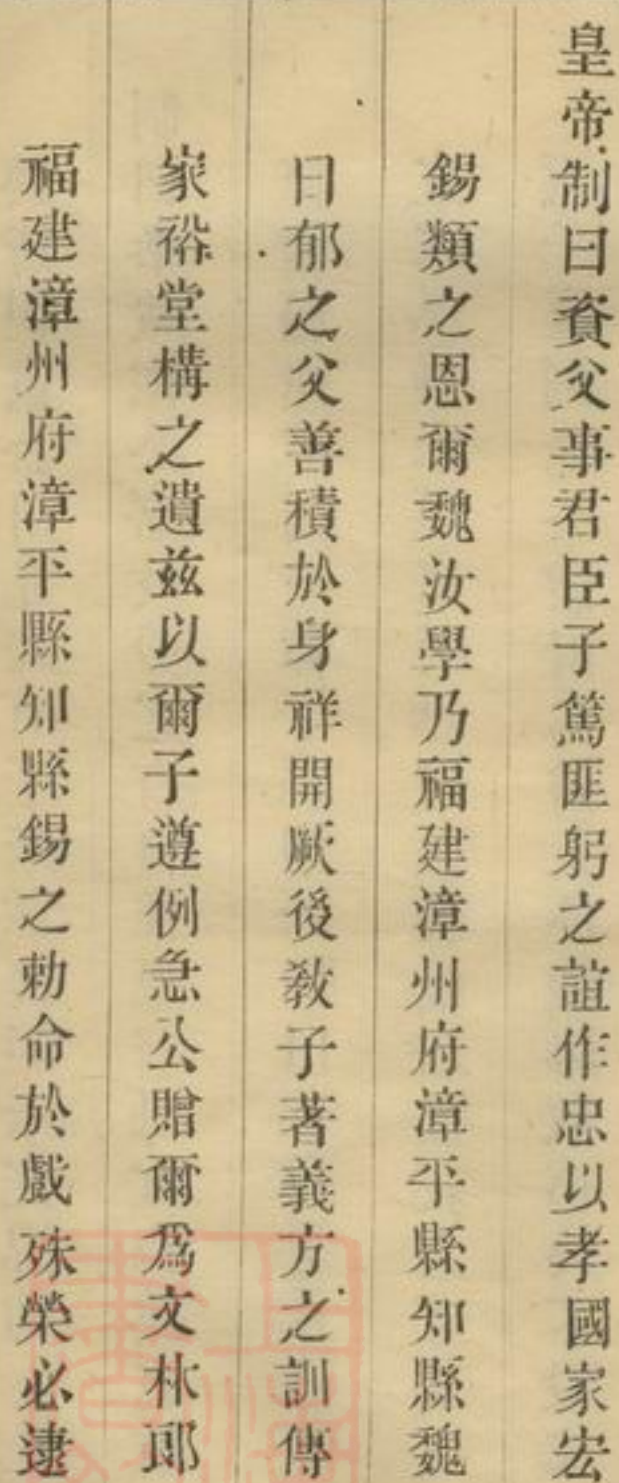 皇帝制曰資父事君臣子篤匪躬之誼作忠以孝國家宏
錫類之恩爾魏汝學乃福建漳州府漳平縣知縣魏
日郁之父善積於身祥開厥後教子著義方之訓傳
家裕堂構之遺茲以爾子遵例急公贈爾爲文林郎
福建漳州府漳平縣知縣錫之勅命於戲殊榮必逮